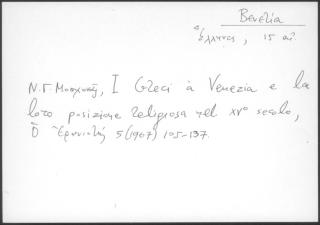 Βενετία
Ἕλληνες, 15 αἰ.
Ν. Γ. Μοσχονᾶς, I Greci à Venezia e la
loro posizione religiosa nel XVº secolo,
Ὁ Ἐρανιστής 5 (1967) 105-137.